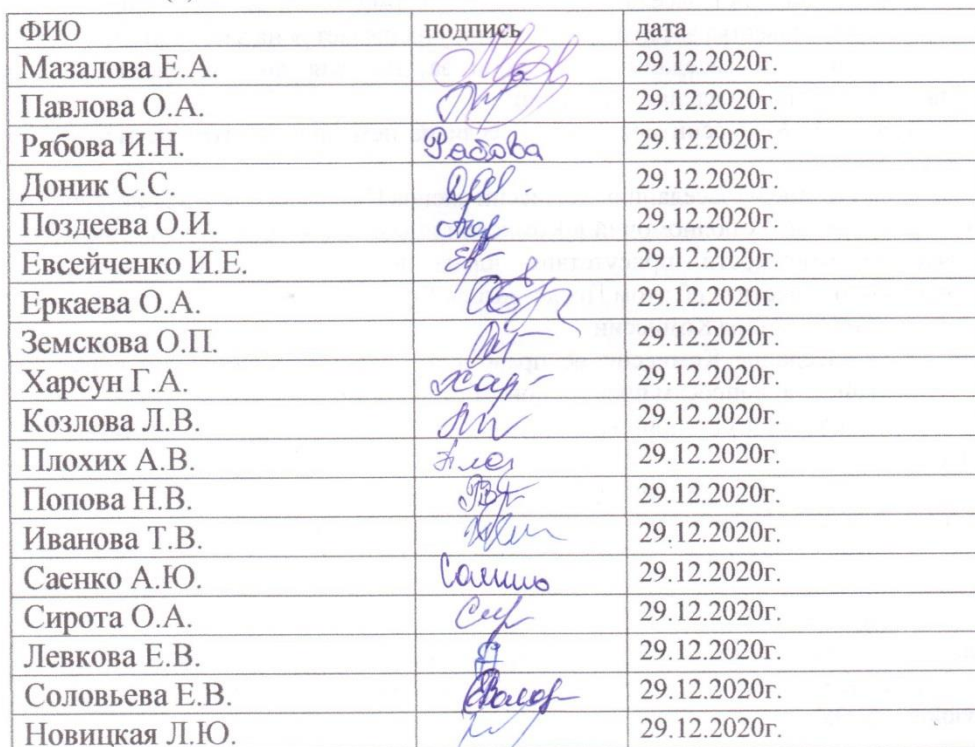 ФИО подпись дата
Мазалова Е.А. 29.12.2020г.
Павлова О.А. 29.12.2020г.
Рябова И.Н. Рябова 29.12.2020г.
Доник С.С. 29.12.2020г.
Поздеева О.И. 29.12.2020г.
Евсейченко И.Е. 29.12.2020г.
Еркаева О.А. 29.12.2020г.
Земскова О.П. 29.12.2020г.
Харсун Г.А. Хар 29.12.2020г.
Козлова Л.В. 29.12.2020г.
Плохих А.В. 29.12.2020г.
Попова Н.В. 29.12.2020г.
Иванова Т.В. 29.12.2020г.
Саенко А.Ю. 29.12.2020г.
Сирота О.А. 29.12.2020г.
Левкова Е.В. 29.12.2020г.
Соловьева Е.В. 29.12.2020г.
Новицкая Л.Ю. 29.12.2020г.